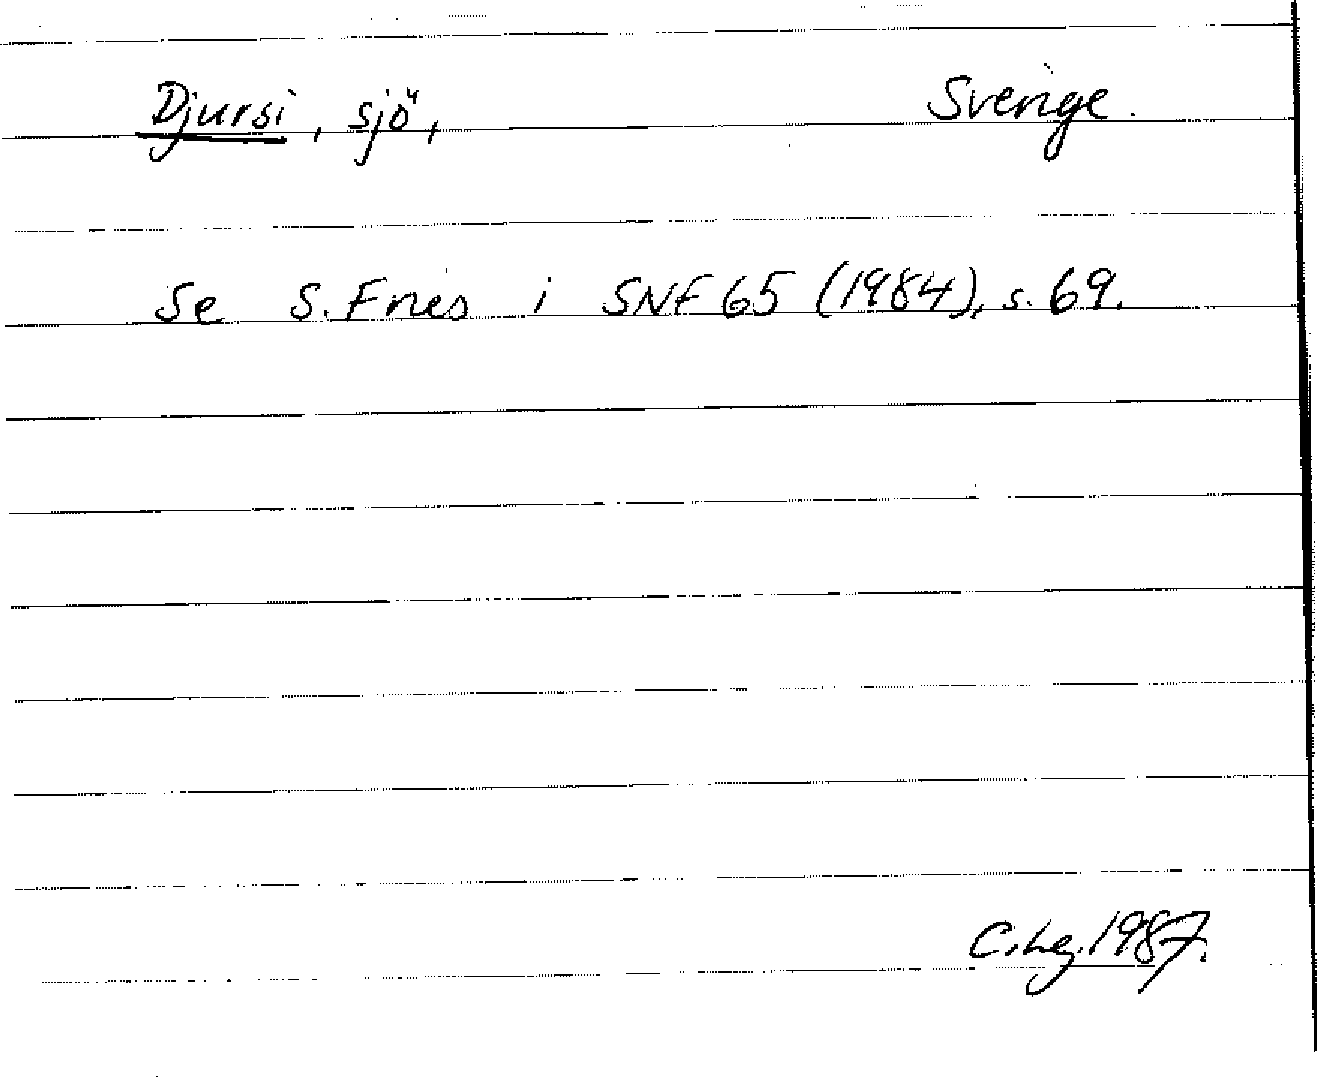 Djursi, sjö, Sverige.
Se S. Fries i SNF 65 (1984), s. 69.
C. Lg. 1987.